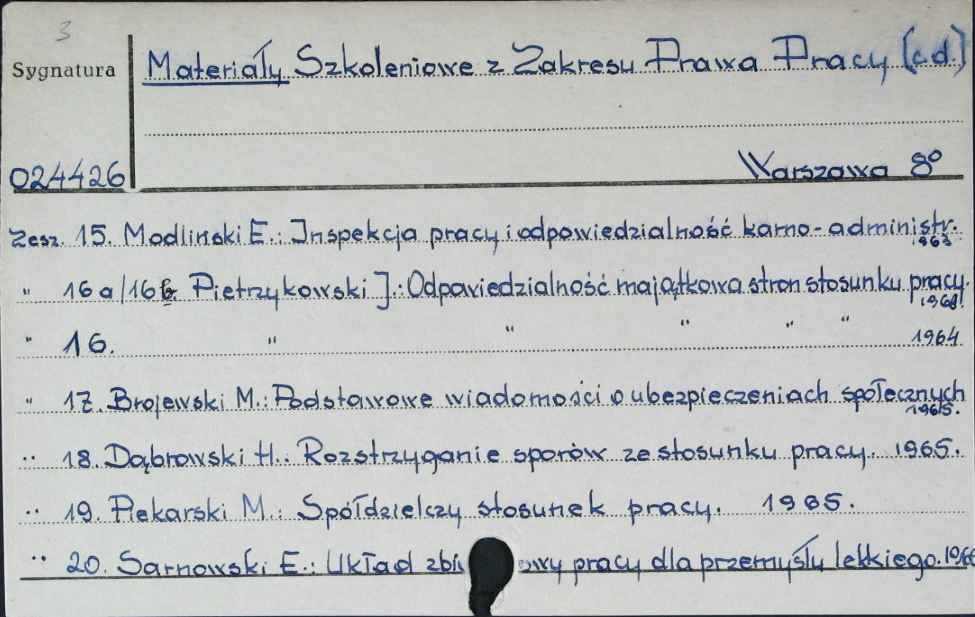 3
Sygnatura
Materiały Szkoleniowe z Zakresu Prawa Pracy (cd.)
024426
Warszawa 8°
Zesz. 15. Modlinski E.: Inspekcja pracy i odpowiedzialność karno-administr.
1963
" 16a/16b Pietrzykowski J.: Odpowiedzialność majątkowa stron stosunku pracy.
1968.
" 16. " " " " " 1964
" 17. Brojewski M.: Podstawowe wiadomości o ubezpieczeniach społecznych
1965.
" 18. Dąbrowski H.: Rozstrzyganie sporów ze stosunku pracy. 1965.
" 19. Piekarski M.: Spółdzielczy stosunek pracy. 1965.
" 20. Sarnowski E.: Układ zbi owy pracy dla przemysłu lekkiego.